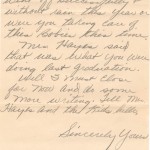 without son this
were you taking care of
their babies this time.
Mrs Harper said
that was what you were
doing last graduation.
Well I must close
for now and do some
more writing. Tell Mr
Harper and the kids hello
Sincerely Yours